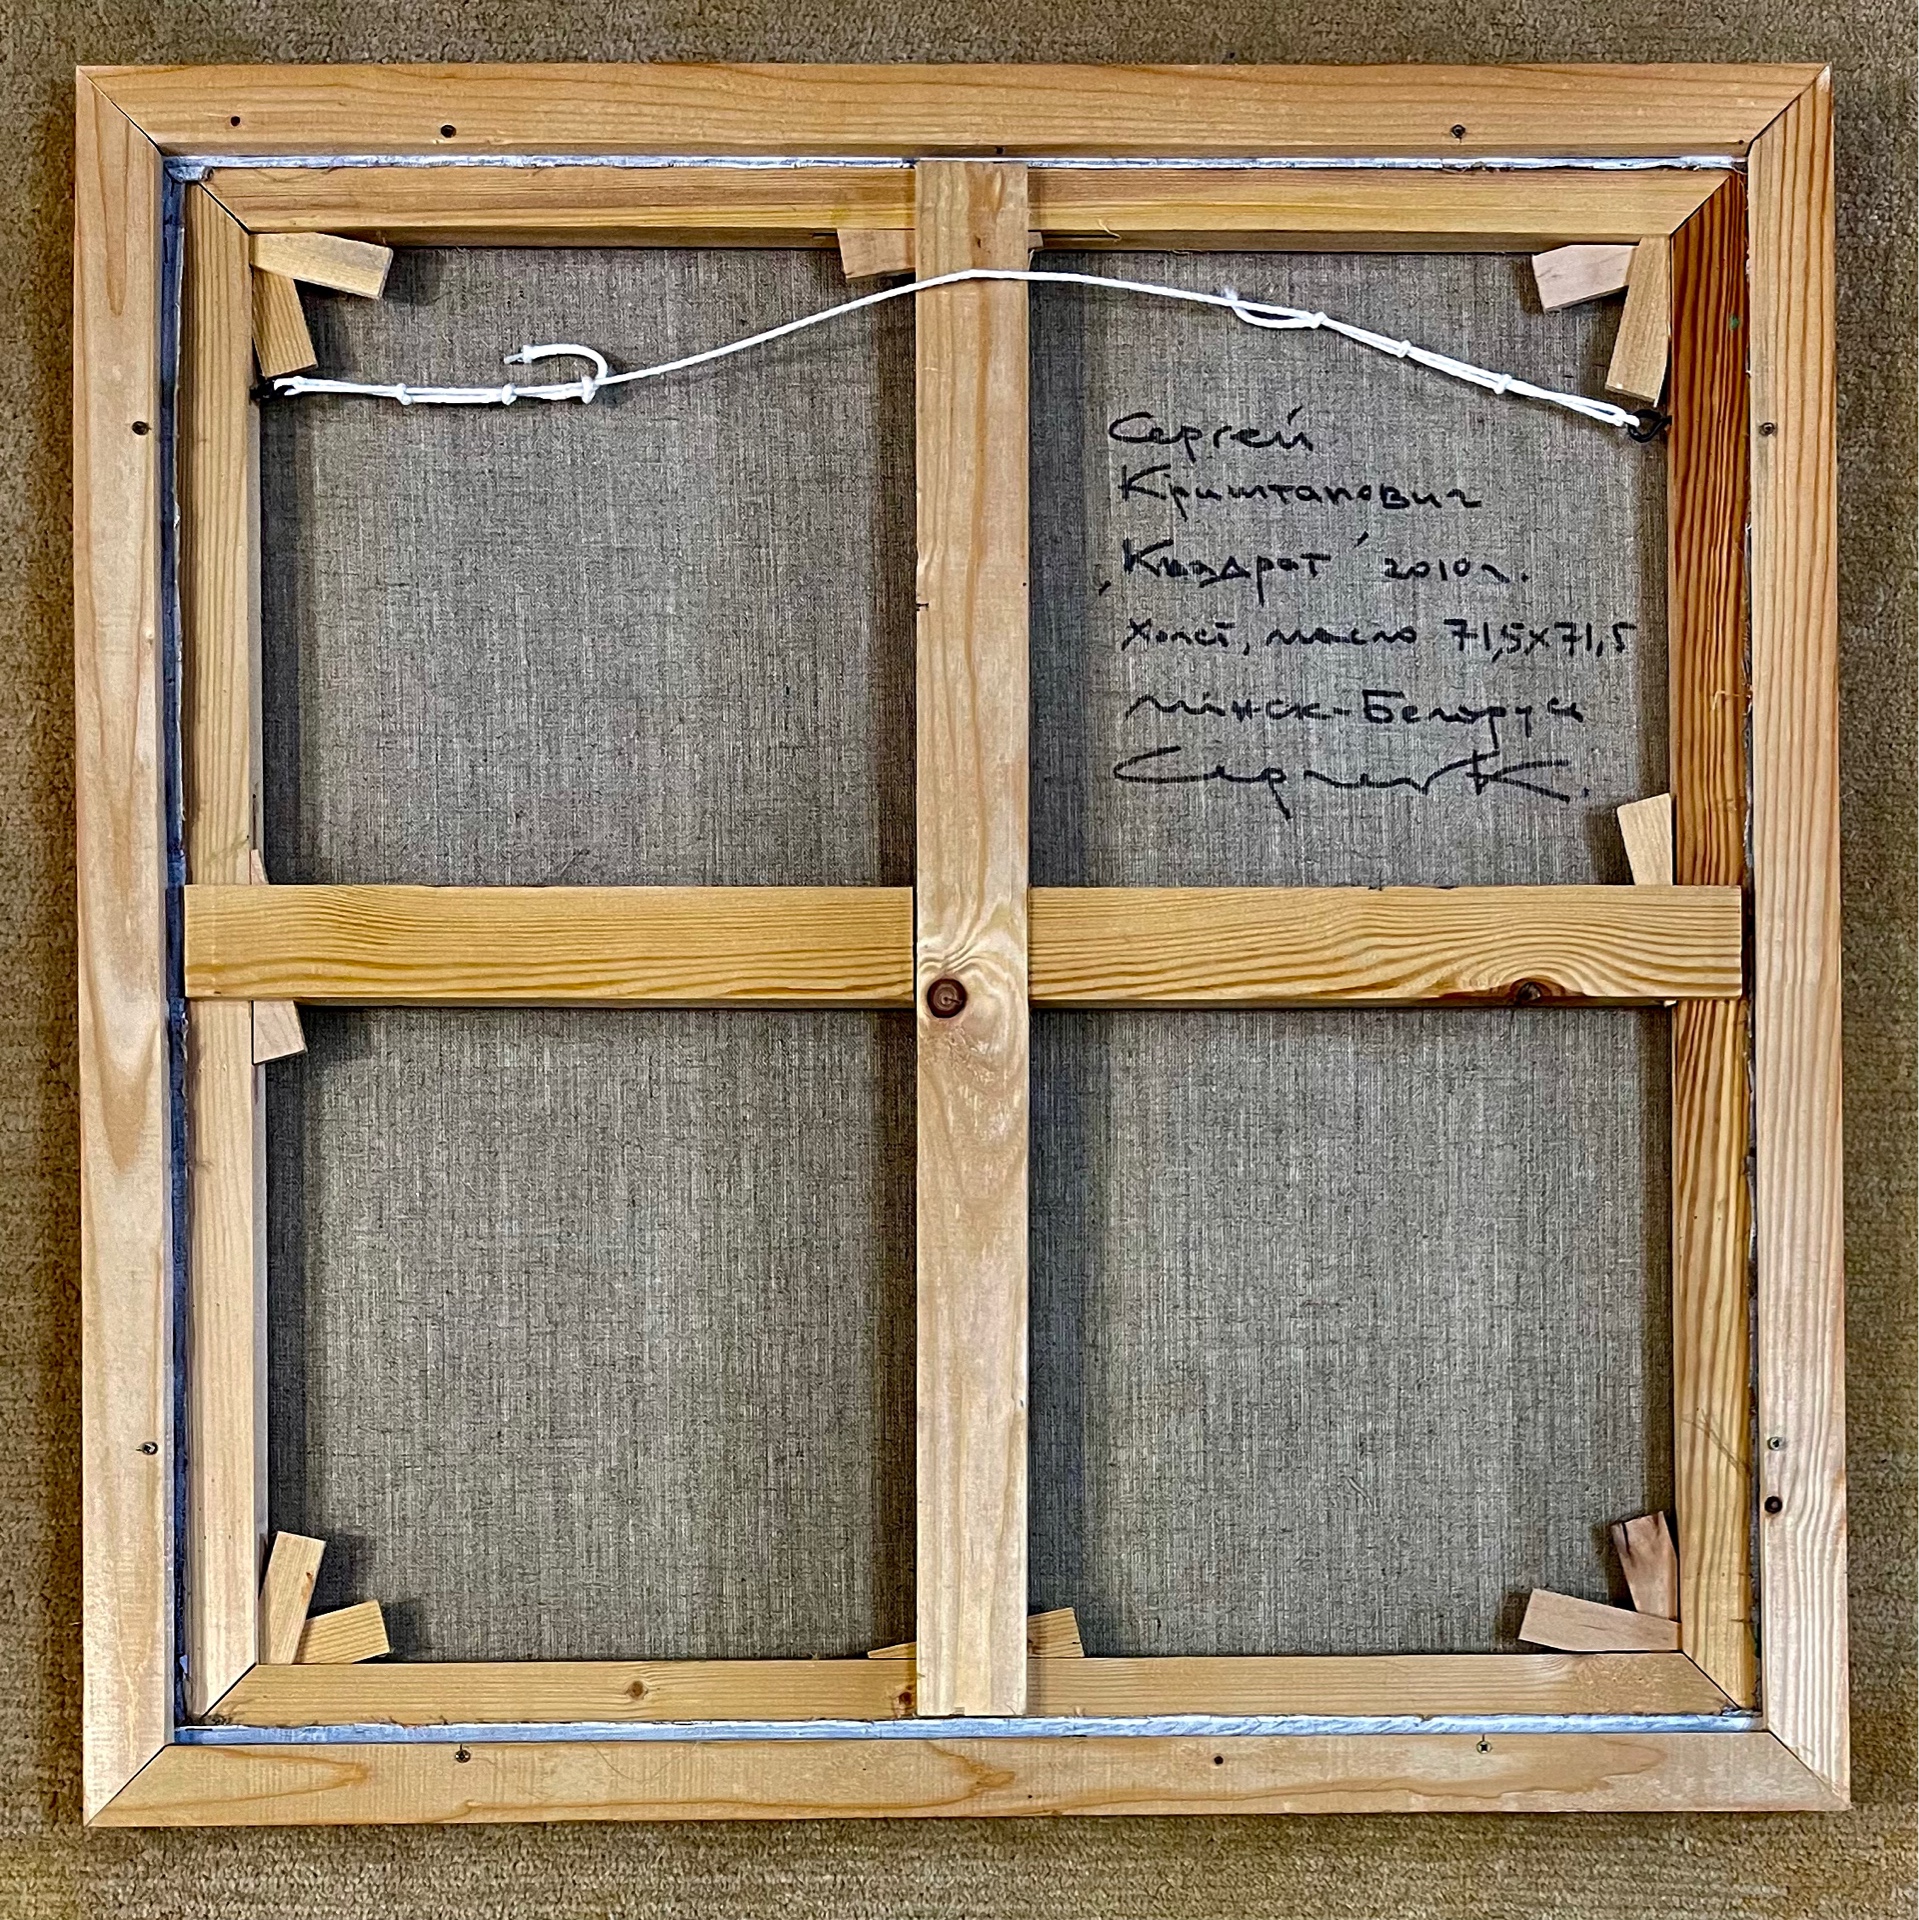 Сергей
Криштапович
„Квадрат" 2010г.
Холст, масло 71,5х71,5
Минск-Беларусь
Сергей К.